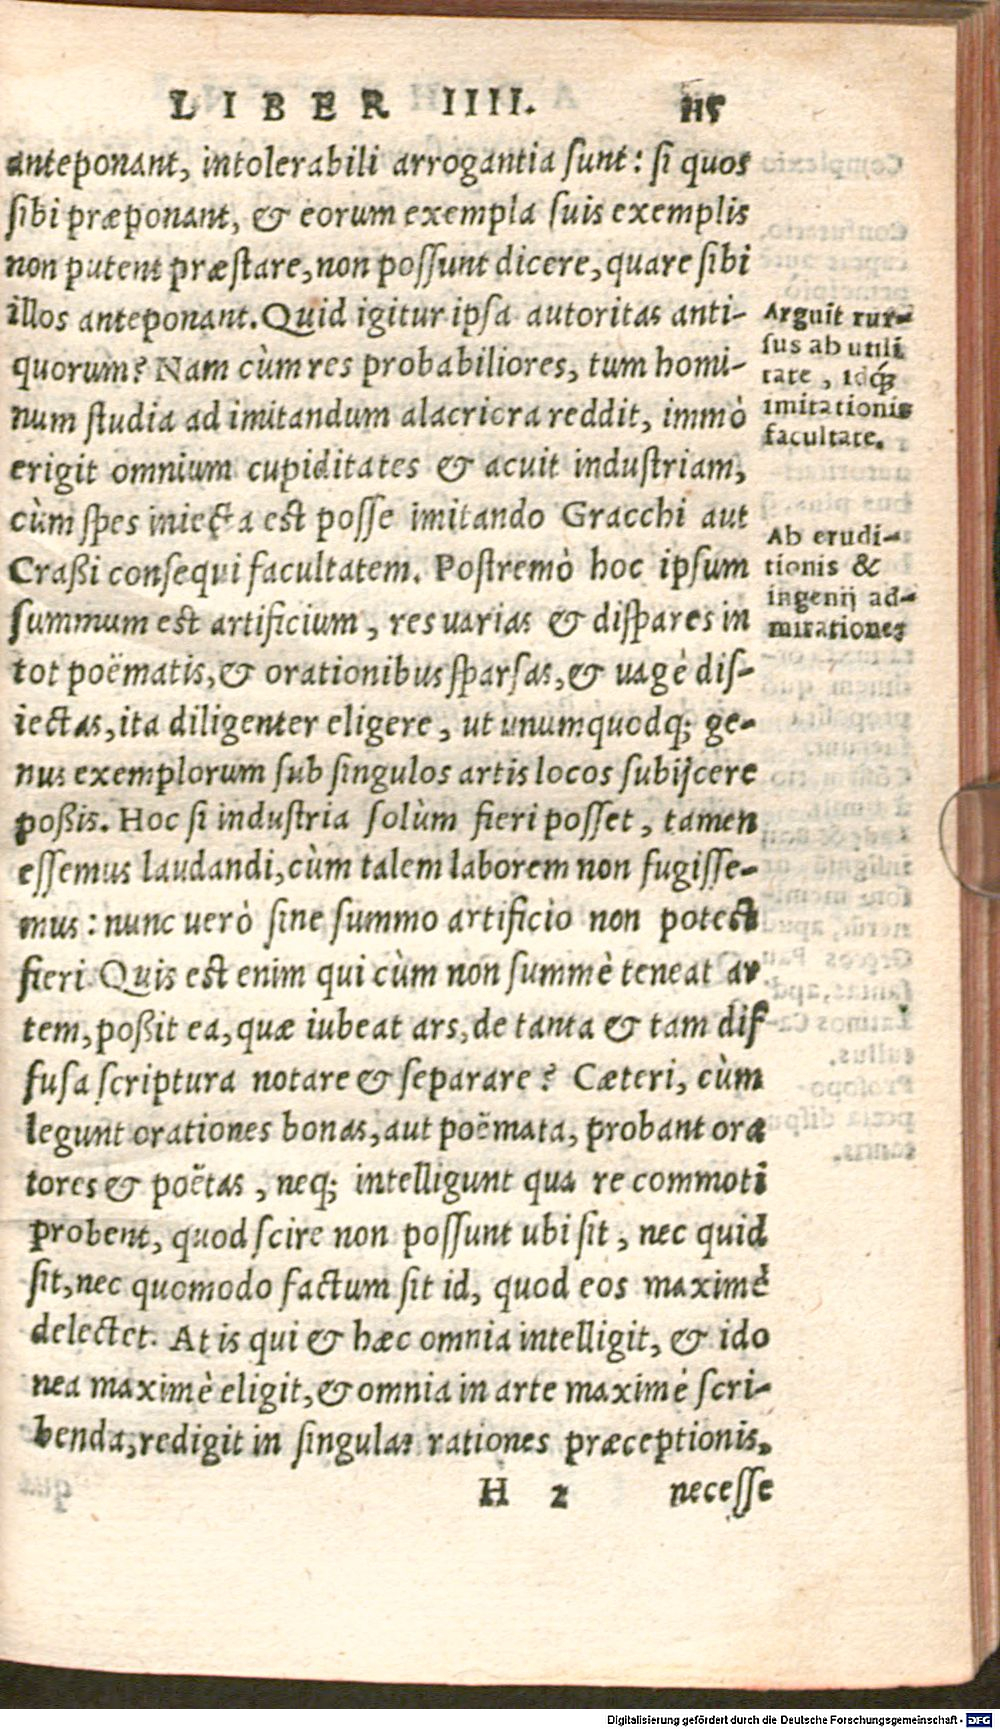 LIBER IIII. 115
anteponant, intolerabili arrogantia sunt: si quos
sibi præponant, & eorum exempla suis exemplis
non putent præstare, non possunt dicere, quare sibi
illos anteponant. Quid igitur ipsa autoritas anti-
quorum? Nam cùm res probabiliores, tum homi-
num studia ad imitandum alacriora reddit, immò
erigit omnium cupiditates & acuit industriam,
cùm spes iniecta est posse imitando Gracchi aut
Craßi consequi facultatem. Postremò hoc ipsum
summum est artificium, res uarias & dispares in
tot poëmatis, & orationibus sparsas, & uagè dis-
iectas, ita diligenter eligere, ut unumquodq; ge-
nus exemplorum sub singulos artis locos subijcere
poßis. Hoc si industria solùm fieri posset, tamen
essemus laudandi, cùm talem laborem non fugisse-
mus: nunc uerò sine summo artificio non potest
fieri. Quis est enim qui cùm non summè teneat ar
tem, poßit ea, quæ iubeat ars, de tanta & tam dif
fusa scriptura notare & separare? Cæteri, cùm
legunt orationes bonas, aut poëmata, probant ora
tores & poëtas, neq; intelligunt qua re commoti
probent, quod scire non possunt ubi sit, nec quid
sit, nec quomodo factum sit id, quod eos maximè
delectet. At is qui & hæc omnia intelligit, & ido
nea maximè eligit, & omnia in arte maximè scri-
benda, redigit in singulas rationes præceptionis,
H 2 necesse
Arguit rur-
sus ab utili
tate, idq́;
imitationis
facultate.
Ab erudi-
tionis &
ingenij ad-
mirationes
Digitalisierung gefördert durch die Deutsche Forschungsgemeinschaft - DFG